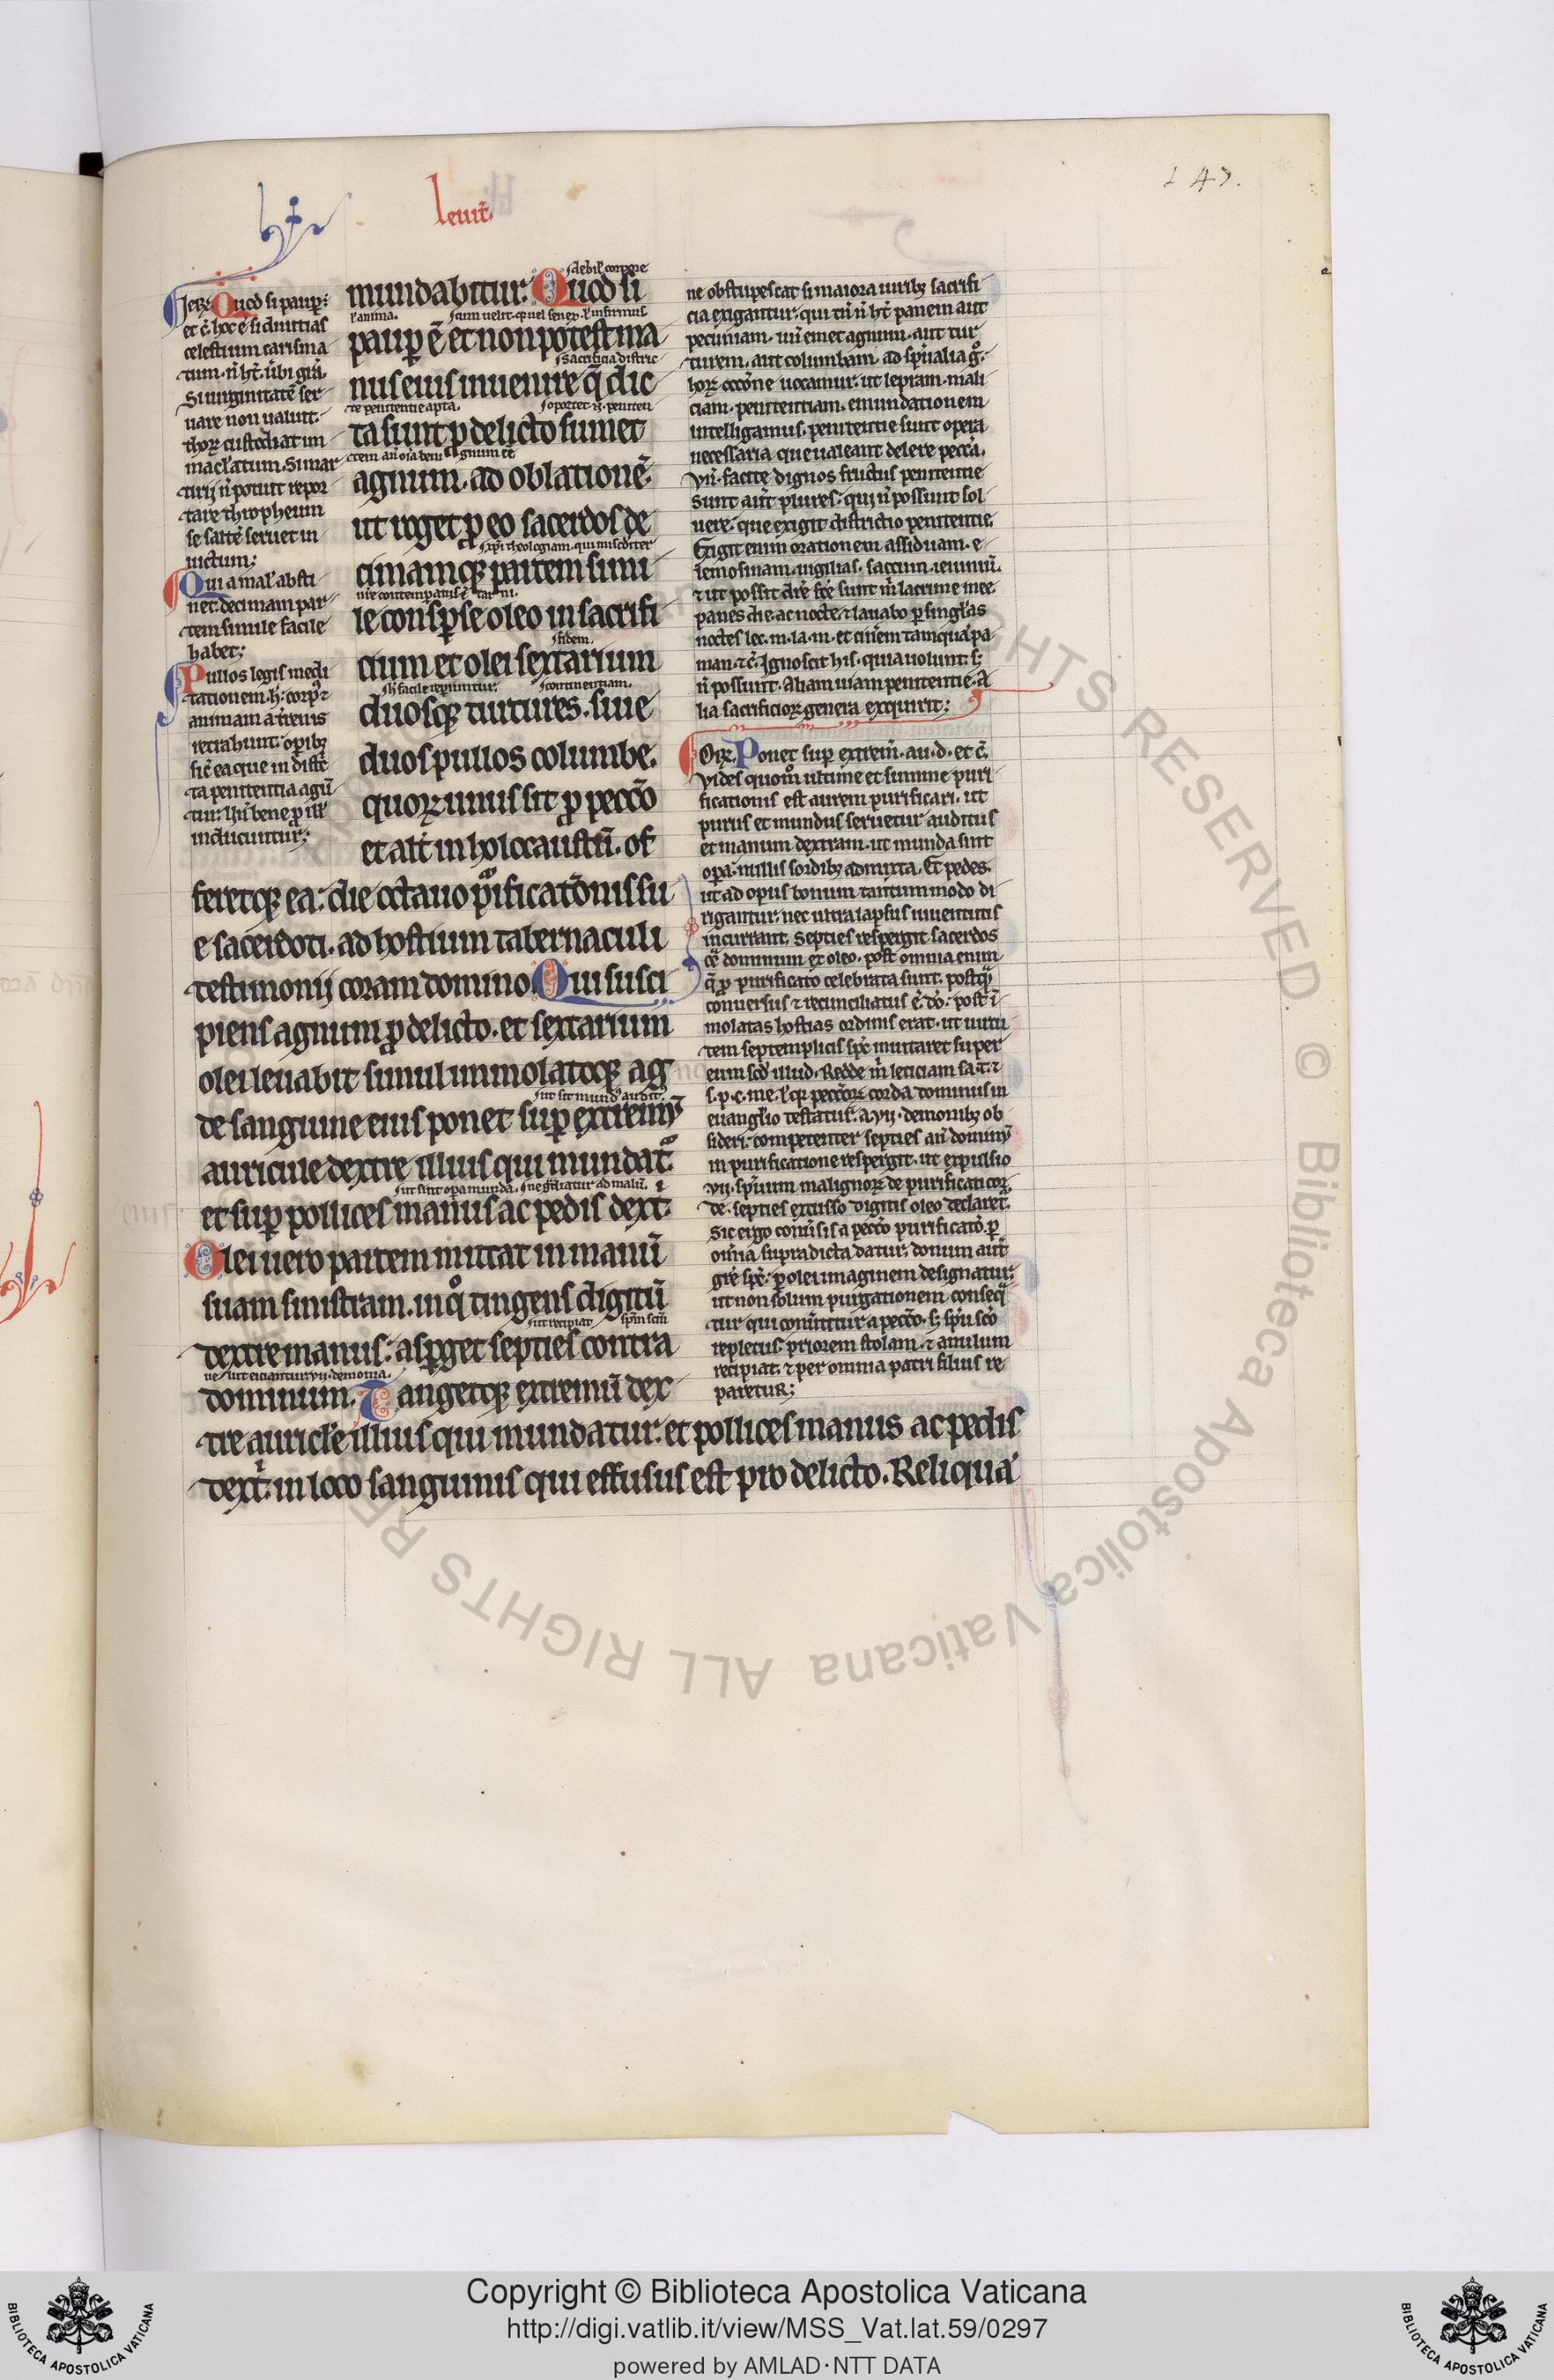 147.
leuit̄.
Ier. Quod si pauper
et c̄. hoc ē si diuitias
celestium carisma
tum. n̄ ht̄. ubi gr̄a.
Si uirginitatē ser
uare non ualuit.
thoꝝ custodiat im
maculatum. Si mar
tirij n̄ potuit repor
tare thropheum
se saltē seruet in
uictum;
Qui a mal' absti
net. decimam par
tem simile facile
habet;
Pullos legis medi
tationem. h: corpꝰ ⁊
animam a terrenis
retrahunt. operibꝫ
inducuntur;
mundabitur. Quod si
debil' corpore
paup ē et non potest ma
l' anima. cum uelit. quel senex. l' infirmus
nus eius inuenire q̄ dic
sacrificia distric
ta sunt ꝓ delicto sumet
te penitentie apta. oportet. n. peniten
agnum. ad oblationē.
ut roget ꝓ eo sacerdos de
cimamqꝫ partem simi
le consꝑse oleo in sacrifi
cium et olei sextarium
fidem.
duosqꝫ turtures. siue
h' facile reperiuntur. continentiam.
duos pullos columbe.
quoꝝ unus sit ꝓ pecc̄o
et alt̄ in holocaustū. of
feretqꝫ ea: die octauo pᵃificatōnis su
e sacerdoti. ad hostium tabernaculi
testimonij coram domino. Qui susci
piens agnum ꝓ delicto. et sextarium
olei leuabit simul immolatoqꝫ ag
de sanguine eius ponet suꝑ extremū
ut sit mundꝰ auditꝰ.
auricule dextre illius qui mundatᷓ.
et suꝑ pollices manus ac pedis dext.
ut sint opera munda.
Olei uero partem mittat in manū
suam sinistram. in qͦ tingens digitū
dextre manus: asꝑget septies contra
ut recipiat sp̄m sc̄m
dominum. Tangetqꝫ extremū dex
ut eiciantur vij. demonia.
tre auricl'e illius qui mundatur. et pollices manus ac pedis
dext. in loco sanguinis qui effusus est pro delicto. Reliquā
ne obstupescat si maiora uiribꝫ sacrifi
cia exigantur. qui tn̄ n̄ ht̄ panem aut
pecuniam. un̄ emet agnum. aut tur
turem. aut columbam. ad spūalia gͦ.
hoꝝ occōne uocamur. ut lepram. mali
ciam. penitentiam. emundationem
intelligamus. penitentie sunt opera
necessaria que ualeant delere pecc̄a.
vn̄. facite dignos fructus penitentie
Sunt aūt plures. qui n̄ possunt sol
uere. que exigit districtio penitentie.
Exigit enim orationem assiduam. e
lemosinam. uigilias. saccum. ieiuniū.
⁊ ut possit dr̄e fc̄e sunt m̄ lacrime mee
panes die ac nocte. ⁊ lauabo ꝑ singl'as
noctes lec. m. la. m. et cinem tamquā pa
nem. ⁊ c̄. Ignoscit his. quia uolunt. s;
n̄ possunt. Aliam uiam penitentie. a
lia sacrificioꝝ genera exquirit;
Orꝝ. Ponet suꝑ extrem̄. au. d. et c̄.
Vides quomͦ ultime et summe puri
ficationis est aurem purificari. ut
purus et mundus seruetur auditus
et manum dextram. ut munda sint
opa. nullis sordibꝫ admixta. Et pedes.
ut ad opus bonum tantummodo di
rigantur. nec ultra lapsus iuuentutis
incurrant. Septies respergit sacerdos
cᵃ dominum ex oleo. post omnia enim
q̄ ꝓ purificato celebrata sunt. postqᵃ
conuersus ⁊ reconciliatus ē dō. post ī
molatas hostias ordinis erat. ut uirtu
tem septemplicis spc̄ inuitaret super
eum scd' illud. Redde m̄ leticiam sa. t. ⁊
s. p. c. me. l' qꝫ pecc̄oꝝ corda dominus in
euangl'io testatur. a vij. demonibꝫ ob
sideri. competenter septies an̄ dominū
in purificatione respergit. ut expulsio
vij. spūum malignoꝝ de purificati cor
de. septies excusso digitis oleo declaret.
Sic ergo conuersis a pecc̄o purificatō. ꝑ
omnia supradicta datur. donum aūt
gr̄e spc̄. ꝑ olei imaginem designatur.
ut non solum purgationem conseqᵃ
tur qui conuertitur a pecc̄o. s; spū sc̄o
repletus. priorem stolam. ⁊ anulum
recipiat. ⁊ per omnia patri filius re
paretur;
© Biblioteca Apostolica Vaticana ALL RIGHTS RESERVED
Copyright © Biblioteca Apostolica Vaticana
http://digi.vatlib.it/view/MSS_Vat.lat.59/0297
powered by AMLAD·NTT DATA
BIBLIOTECA APOSTOLICA VATICANA
BIBLIOTECA APOSTOLICA VATICANA